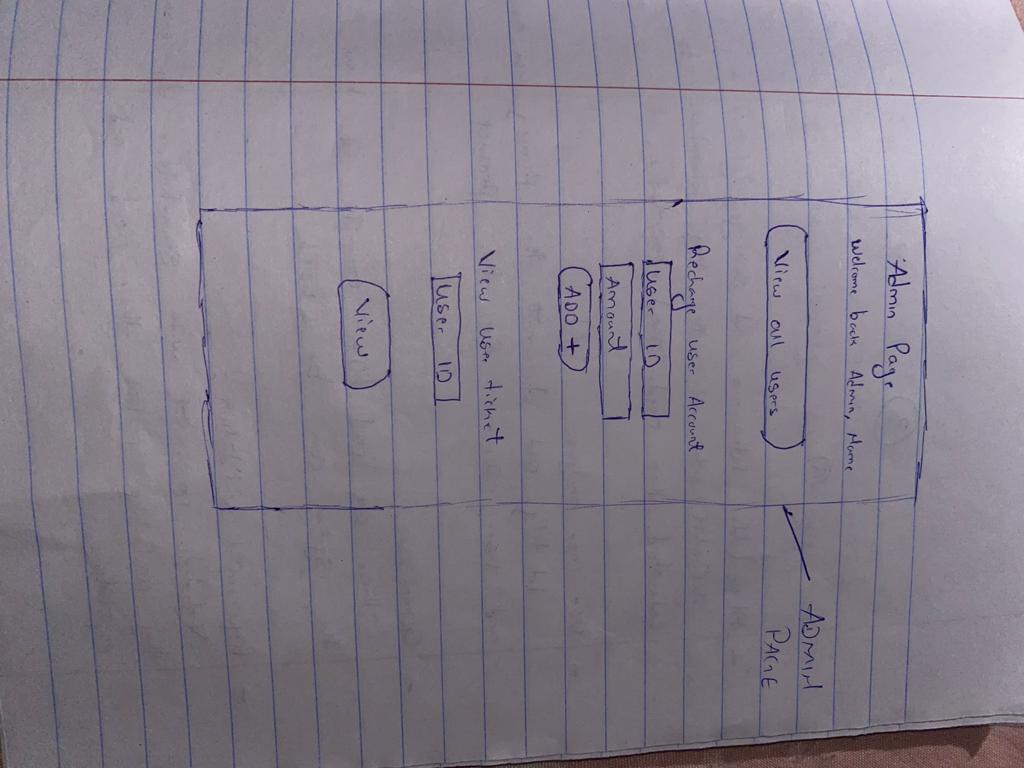 Admin Page
Welcome back Admin, Name
View all users
ADMIN
PAGE
Recharge user Account
User ID
Amount
ADD +
View user ticket
User ID
View